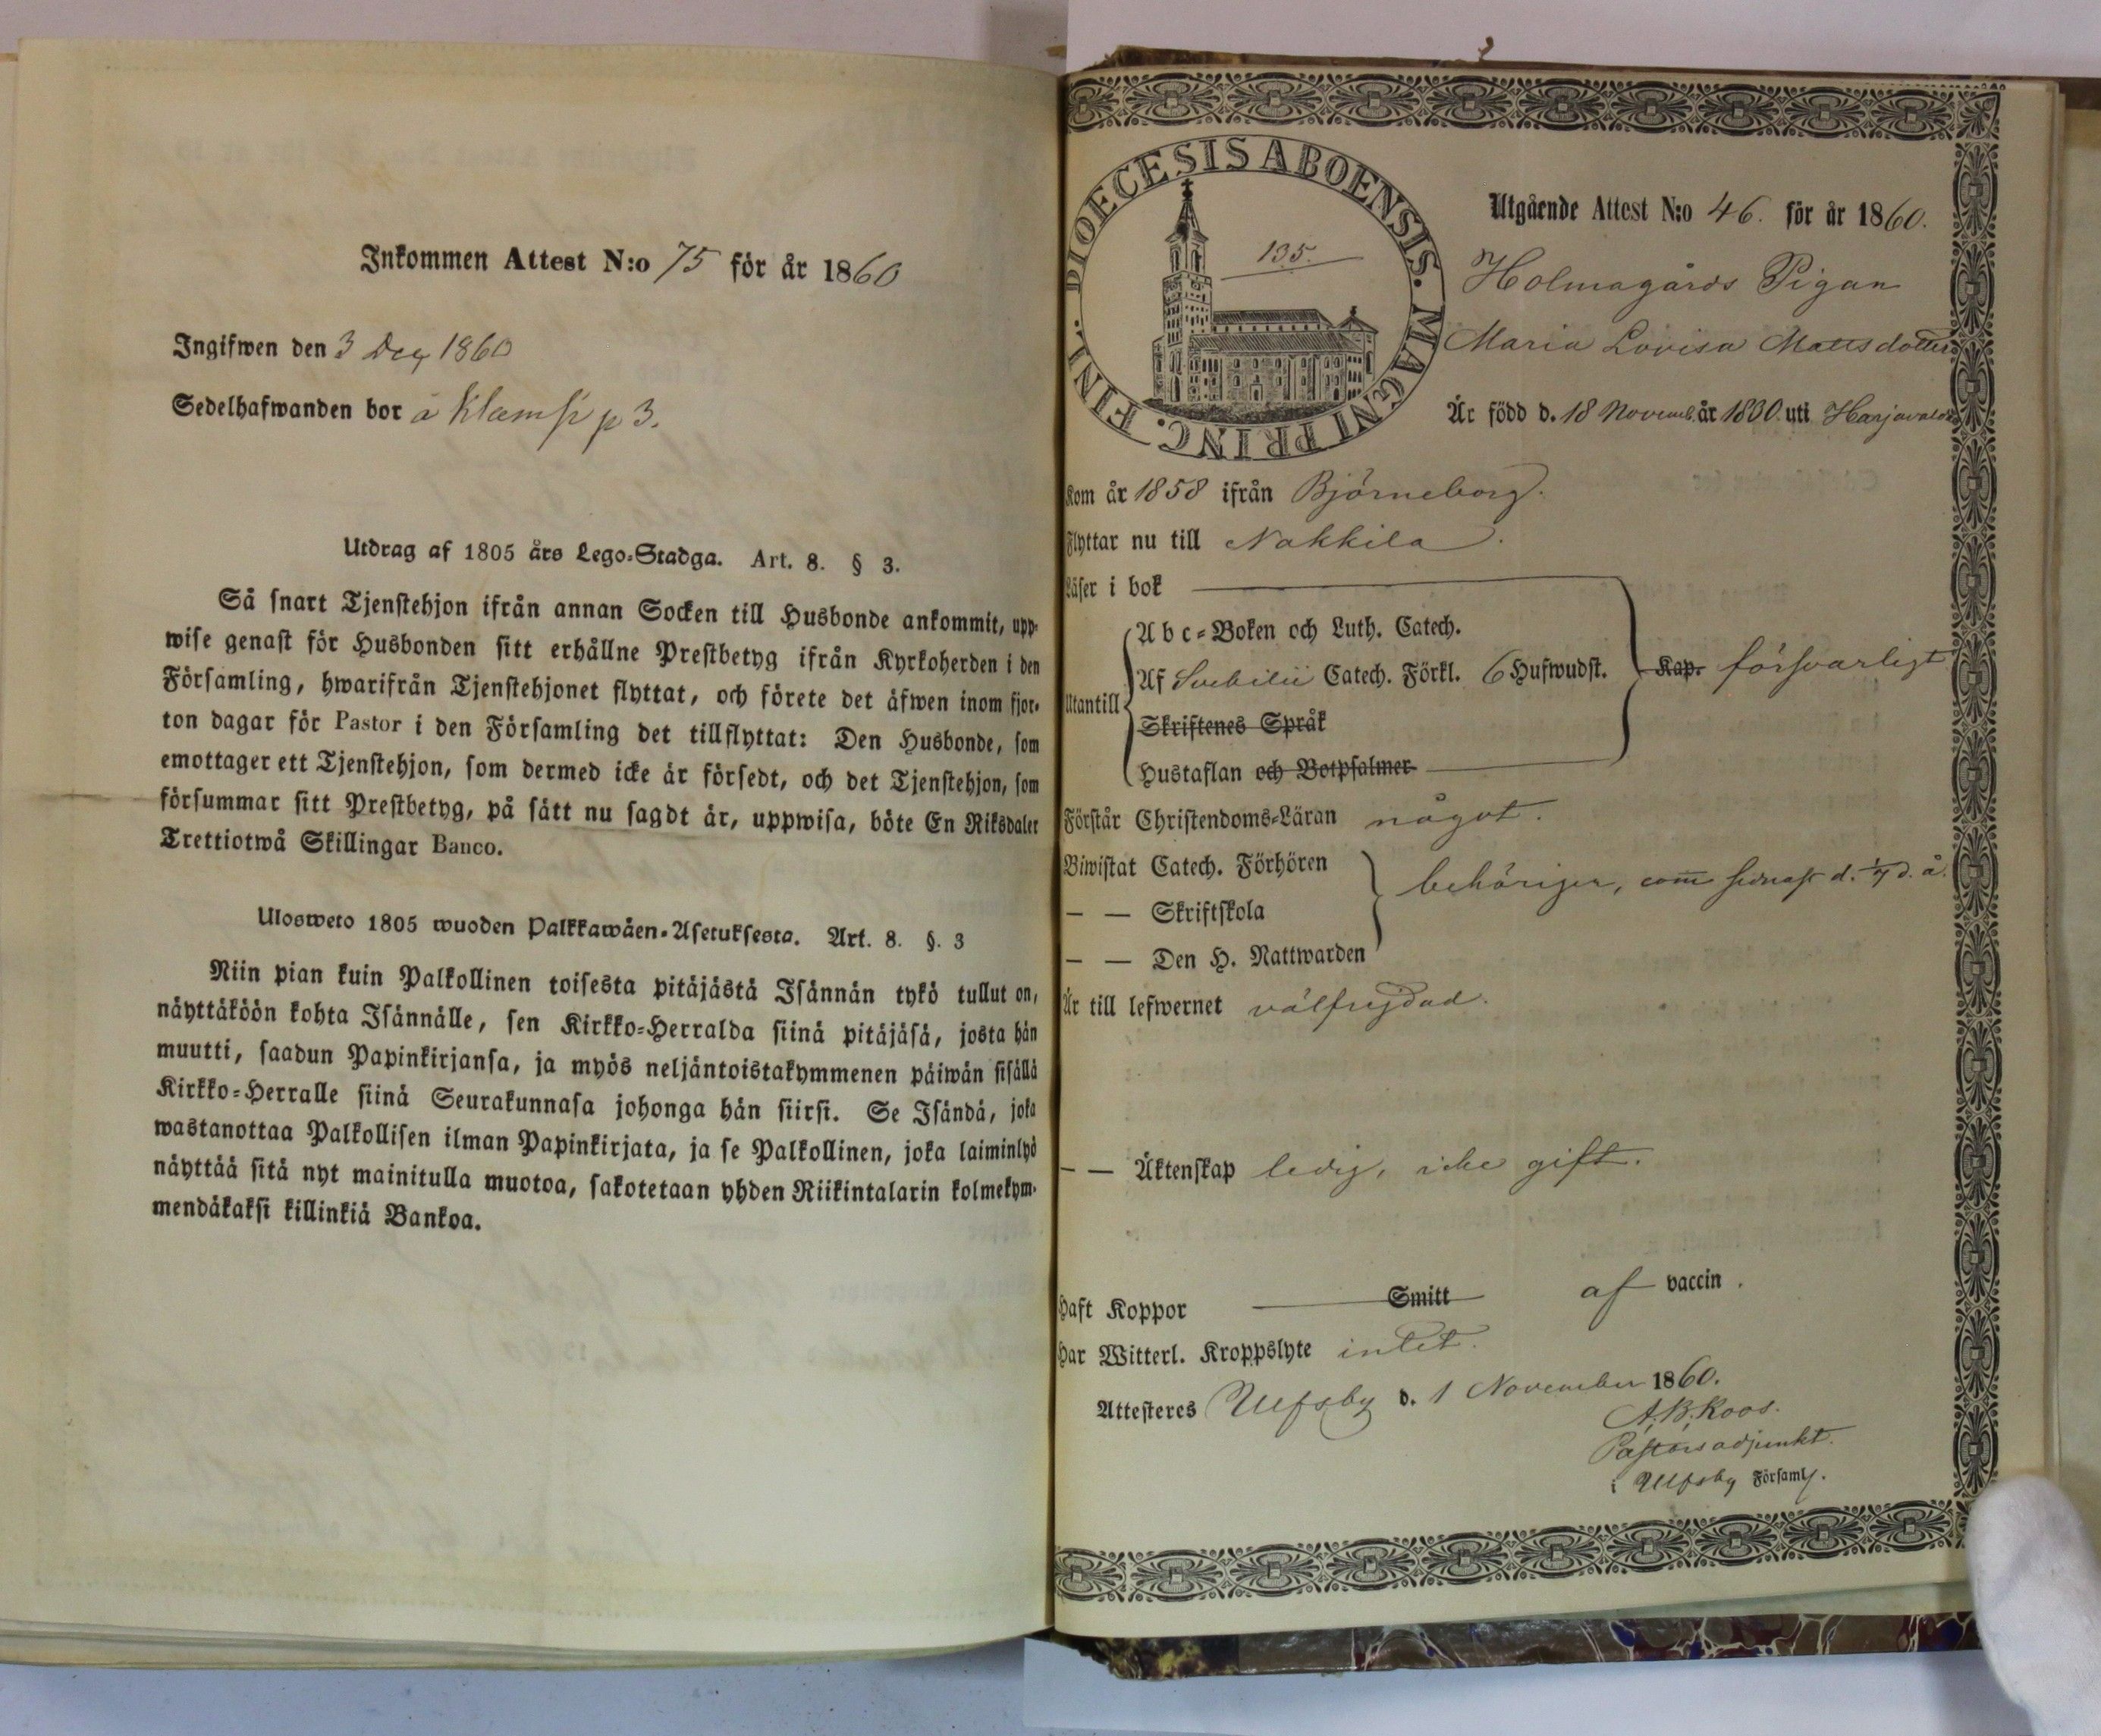 Inkommen Attest N:o 75 för år 1860
Ingifwen den 3 Dec 1860
Sedelhafwanden bor å Klemss p 3.
Utdrag af 1805 års Lego-Stadga. Art. 8. § 3.
Så snart Tjenstehjon ifrån annan Socken till Husbonde ankommit, upp-
wise genast för Husbonden sitt erhållne Prestbetyg ifrån Kyrkoherden i den
Församling, hwarifrån Tjenstehjonet flyttat, och förete det äfwen inom fjor-
ton dagar för Pastor i den Församling det tillflyttat: Den Husbonde, som
emottager ett Tjenstehjon, som dermed icke är försedt, och det Tjenstehjon, som
försummar sitt Prestbetyg, på sätt nu sagdt är, uppwisa, böte En Riksdaler
Trettiotwå Skillingar Banco.
Ulosweto 1805 wuoden Palkkawäen-Asetuksesta. Art. 8. §. 3
Niin pian kuin Palkollinen toisesta pitäjästä Isännän tykö tullut on,
näyttäköön kohta Isännälle, sen Kirkko-Herralda siinä pitäjäsä, josta hän
muutti, saadun Papinkirjansa, ja myös neljäntoistakymmenen päiwän sisällä
Kirkko-Herralle siinä Seurakunnasa johonga hän siirsi. Se Isändä, joka
wastanottaa Palkollisen ilman Papinkirjata, ja se Palkollinen, joka laiminlyö
näyttää sitä nyt mainitulla muotoa, sakotetaan yhden Riikintalarin kolmekym-
mendäkaksi killinkiä Bankoa.
DIOECESIS ABOENSIS. MAGNI PRINC. FINL.
135.
Utgående Attest N:o 46. för år 1860.
Holmagårds Pigan
Maria Lovisa Mattsdotter
Är född d. 18 Novemb. år 1830. uti Harjavalda
Kom år 1858 ifrån Björneborg.
Flyttar nu till Nakkila.
Läser i bok
Utantill
A b c-Boken och Luth. Catech.
Af Svebilii Catech. Förkl. 6 Hufwudst. Kap. försvarligt
Skriftenes Språk
Hustaflan och Botpsalmer
Förstår Christendoms-Läran något.
Biwistat Catech. Förhören
behörigen, com sednast d. 1/7 d. å.
— — Skriftskola
— — Den H. Nattwarden
Är till lefwernet välfrejdad.
— — Äktenskap ledig, icke gift.
Haft Koppor Smitt af vaccin.
Har Witterl. Kroppslyte intet.
Attesteres Ulfsby d. 1 November 1860.
A. B. Roos.
Pastorsadjunkt.
i Ulfsby Församl.